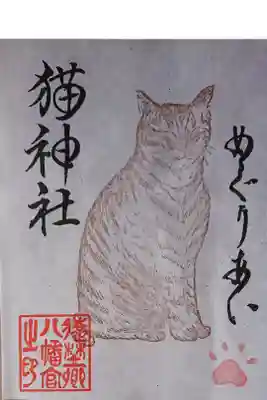 猫神社
めぐりあい
八幡宮
之印